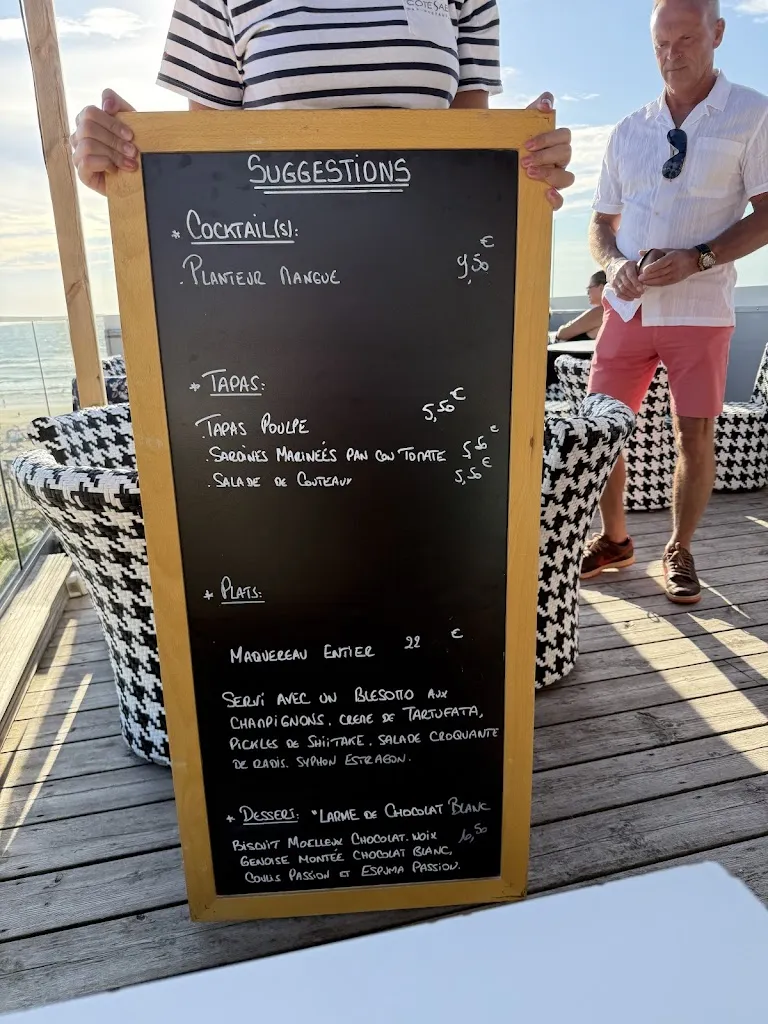 CÔTÉ SABLE
SUGGESTIONS
* COCKTAIL(S):
. PLANTEUR MANGUE 9,50 €
* TAPAS:
. TAPAS POULPE 5,50 €
. SARDINES MARINEÉS PAN CON TOMATE 5,50 €
. SALADE DE COUTEAUX 5,50 €
* PLATS:
MAQUEREAU ENTIER 22 €
SERVI AVEC UN BLESOTTO AUX
CHAMPIGNONS. CREME DE TARTUFATA,
PICKLES DE SHIITAKE. SALADE CROQUANTE
DE RADIS. SYPHON ESTRAGON.
* DESSERT: "LARME DE CHOCOLAT BLANC
BISCUIT MOELLEUX CHOCOLAT. NOIX 10,50
GENOISE MONTÉE CHOCOLAT BLANC,
COULIS PASSION ET ESPUMA PASSION.